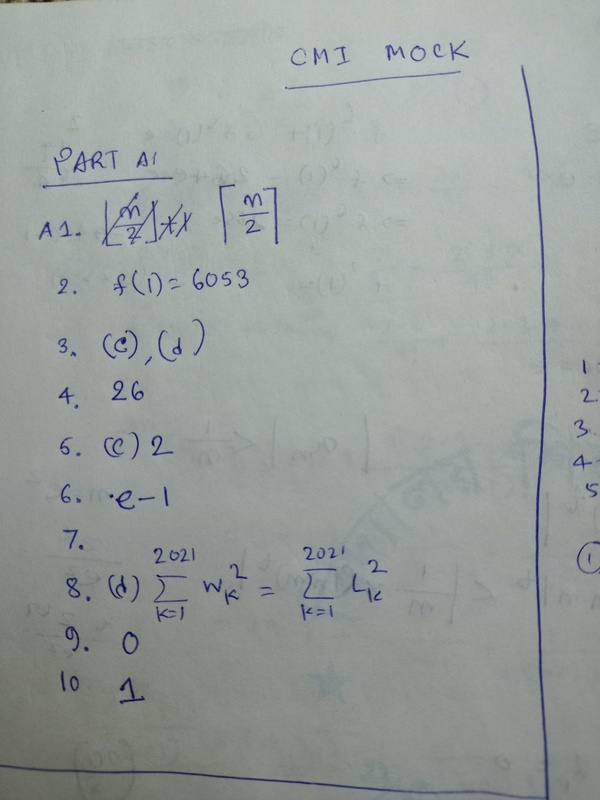 CMI MOCK
PART A1
A1. ⌈n/2⌉
2. f(1) = 6053
3. (c), (d)
4. 26
5. (c) 2
6. e-1
7.
8. (d) 2021 ∑ k=1 W_k^2 = 2021 ∑ k=1 L_k^2
9. 0
10 1
1
2.
3.
4-
5
1